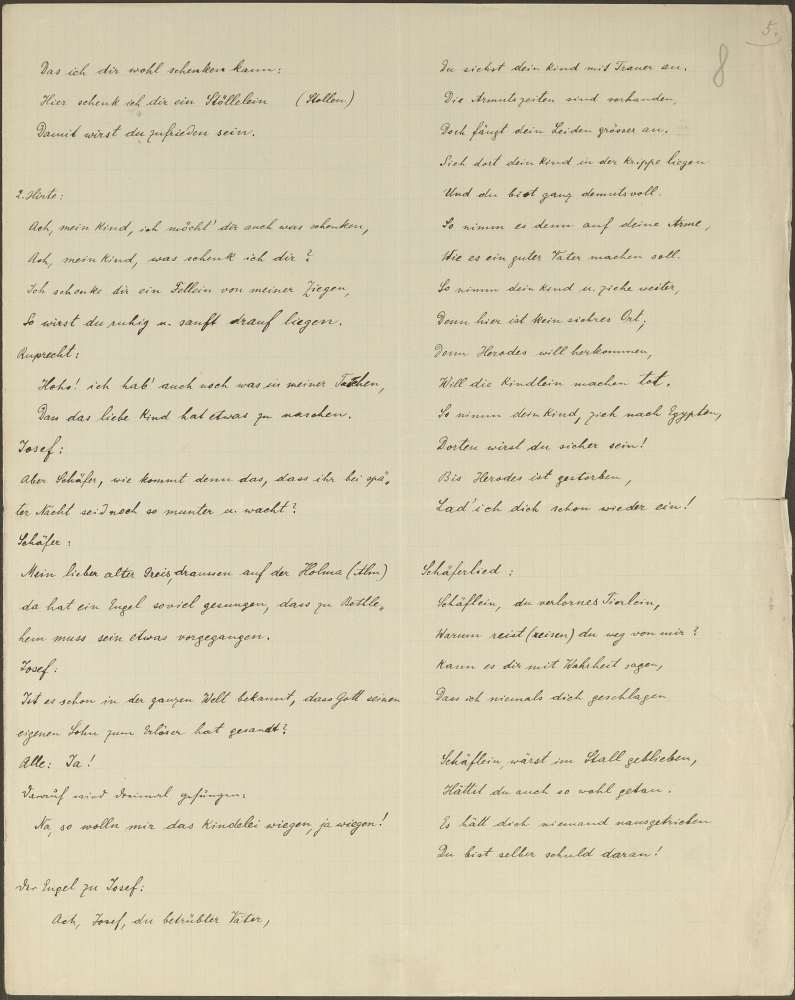 Das ich dir wohl schenken kann:
Hier schenk ich dir ein Stöllelein (Stollen)
Damit wirst du zufrieden sein.
2. Hirte:
Ach, mein Kind, ich möcht' dir auch was schenken,
Ach, mein Kind, was schenk ich dir?
Ich schenke dir ein Fellein von meiner Ziegen,
So wirst du ruhig u. sanft drauf liegen.
Ruprecht:
Hoho! ich hab' auch noch was in meiner Taschen,
Dass das liebe Kind hat etwas zu naschen.
Josef:
Aber Schäfer, wie kommt denn das, dass ihr bei spä„
ter Nacht seid noch so munter u. wacht?
Schäfer:
Mein lieber alter Greis, draussen auf der Holma (:Alm)
da hat ein Engel soviel gesungen, dass zu Bettle„
hem muss sein etwas vorgegangen.
Josef:
Ist es schon in der ganzen Welt bekannt, dass Gott seinen
eigenen Sohn zum Erlöser hat gesandt?
Alle: Ja!
Darauf wird dreimal gesungen:
Na, so wolln mir das Kindelei wiegen, ja wiegen!
Der Engel zu Josef:
Ach, Josef, du betrübter Vater,
5.
8
Du siehst dein Kind mit Trauer an.
Die Armutszeiten sind vorhanden,
Doch fängt dein Leiden grösser an.
Sieh dort dein Kind in der Krippe liegen
Und du bist ganz demutsvoll.
So nimm es denn auf deine Arme,
Wie es ein guter Vater machen soll.
So nimm dein Kind u. ziehe weiter,
Denn hier ist kein sichres Ort;
Denn Herodes will herkommen,
Will die Kindlein machen tot.
So nimm dein Kind, zieh nach Egypten,
Dorten wirst du sicher sein!
Bis Herodes ist gestorben,
Lad' ich dich schon wieder ein!
Schäferlied:
Schäflein, du verlornes Tierlein,
Warum reist (reisen) du weg von mir?
Kann es dir mit Wahrheit sagen,
Dass ich niemals dich geschlagen
Schäflein, wärst im Stall geblieben,
Hättst du auch so wohl getan.
Es hätt dich niemand nausgetrieben
Du bist selber schuld daran!